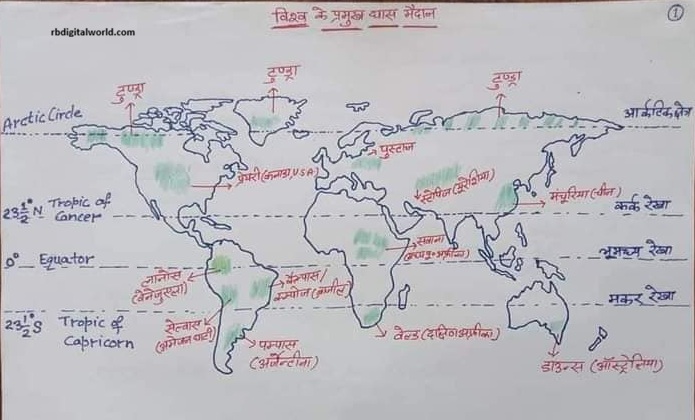 विश्व के प्रमुख घास मैदान
①
rbdigitalworld.com
टुण्ड्रा
टुण्ड्रा
टुण्ड्रा
Arctic Circle
आर्कटिक क्षेत्र
पुस्टाज
प्रेयरी (कनाडा, USA)
स्टेपीज (यूरेशिया)
मंचूरिया (चीन)
23½°N Tropic of
Cancer
कर्क रेखा
सवाना
0° Equator
भूमध्य रेखा
लानोस
(वेनेजुएला)
कैम्पास/
मकर रेखा
23½°S Tropic of
Capricorn
सेल्वास
(अमेजन घाटी)
पम्पास
(अर्जेन्टीना)
वेल्ड (दक्षिण अफ्रीका)
डाउन्स (ऑस्ट्रेलिया)